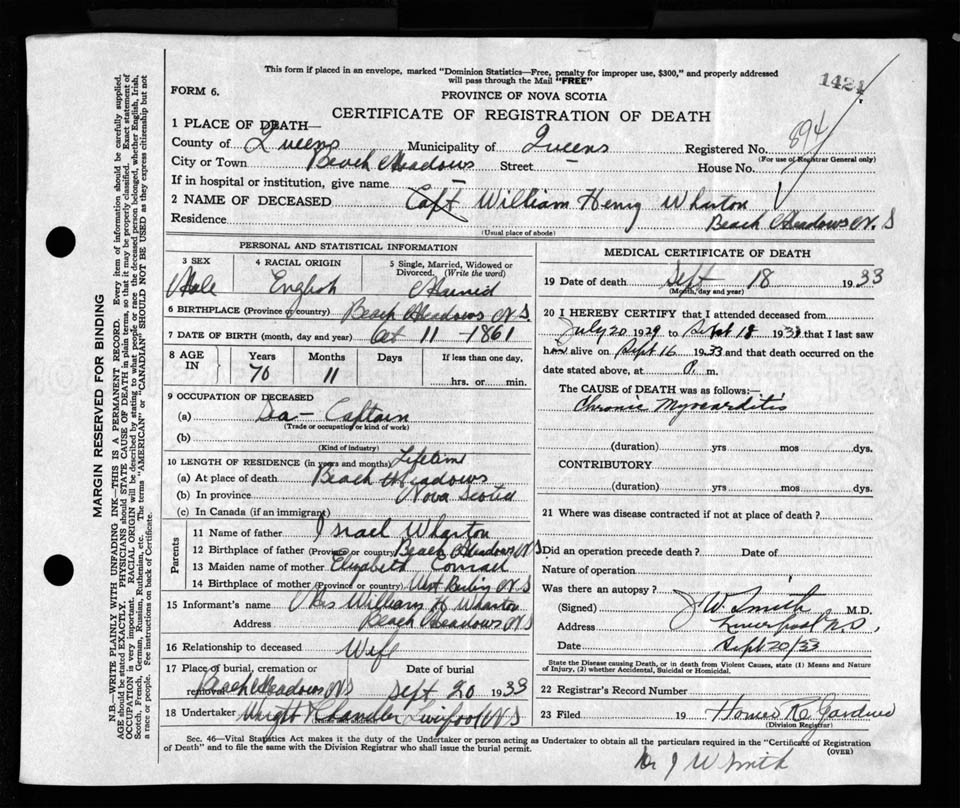 This form if placed in an envelope, marked "Dominion Statistics—Free, penalty for improper use, $300," and properly addressed
will pass through the Mail "FREE"
1421
FORM 6.
PROVINCE OF NOVA SCOTIA
CERTIFICATE OF REGISTRATION OF DEATH
1 PLACE OF DEATH—
County of Queens Municipality of Queens Registered No. 894
(For use of Registrar General only)
City or Town Beach Meadows Street House No.
If in hospital or institution, give name
2 NAME OF DECEASED Capt William Henry Wharton
Residence Beach Meadows N.S
(Usual place of abode)
PERSONAL AND STATISTICAL INFORMATION
3 SEX Male
4 RACIAL ORIGIN English
5 Single, Married, Widowed or Divorced. (Write the word) Married
6 BIRTHPLACE (Province or country) Beach Meadows N.S.
7 DATE OF BIRTH (month, day and year) Oct 11 - 1861
8 AGE IN Years 70 Months 11 Days If less than one day, hrs. or min.
9 OCCUPATION OF DECEASED
(a) Sea-Captain
(Trade or occupation or kind of work)
(b)
(Kind of industry)
10 LENGTH OF RESIDENCE (in years and months) Lifetime
(a) At place of death Beach Meadows
(b) In province Nova Scotia
(c) In Canada (if an immigrant)
Parents
11 Name of father Israel Wharton
12 Birthplace of father (Province or country) Beach Meadows N S
13 Maiden name of mother Elizabeth Conrad
14 Birthplace of mother (Province or country) West Berlin N.S
15 Informant's name Mrs William H Wharton
Address Beach Meadows N S
16 Relationship to deceased Wife
17 Place of burial, cremation or removal Beach Meadows N S Date of burial Sept 20 1933
18 Undertaker Wright & Chandler Liverpool N S
MEDICAL CERTIFICATE OF DEATH
19 Date of death Sept 18 1933
(Month, day and year)
20 I HEREBY CERTIFY that I attended deceased from
July 20 1929 to Sept 18 1933 that I last saw
him alive on Sept 16 1933 and that death occurred on the
date stated above, at P. m.
The CAUSE OF DEATH was as follows:—
Chronic Myocarditis
(duration) yrs mos dys.
CONTRIBUTORY
(duration) yrs mos dys.
21 Where was disease contracted if not at place of death?
Did an operation precede death? Date of
Nature of operation
Was there an autopsy?
(Signed) J W. Smith M.D.
Address Liverpool N.S,
Date Sept 20/33
State the Disease causing Death, or in death from Violent Causes, state (1) Means and Nature
of Injury, (2) whether Accidental, Suicidal or Homicidal.
22 Registrar's Record Number
23 Filed 19 Homer K. Gardner
(Division Registrar)
Sec. 46—Vital Statistics Act makes it the duty of the Undertaker or person acting as Undertaker to obtain all the particulars required in the "Certificate of Registration
of Death" and to file the same with the Division Registrar who shall issue the burial permit.
(OVER)
Dr J W Smith
MARGIN RESERVED FOR BINDING
N.B.—WRITE PLAINLY WITH UNFADING INK—THIS IS A PERMANENT RECORD. Every item of information should be carefully supplied.
AGE should be stated EXACTLY. PHYSICIANS should STATE CAUSE OF DEATH in plain terms, so that it may be properly classified. Exact statement of
OCCUPATION is very important. RACIAL ORIGIN will be described by stating to what people or race the deceased person belonged, whether English, Irish,
Scotch, French, German, Russian, Ruthenian, etc. The terms "AMERICAN" or "CANADIAN" SHOULD NOT BE USED as they express citizenship but not
a race or people. See instructions on back of Certificate.